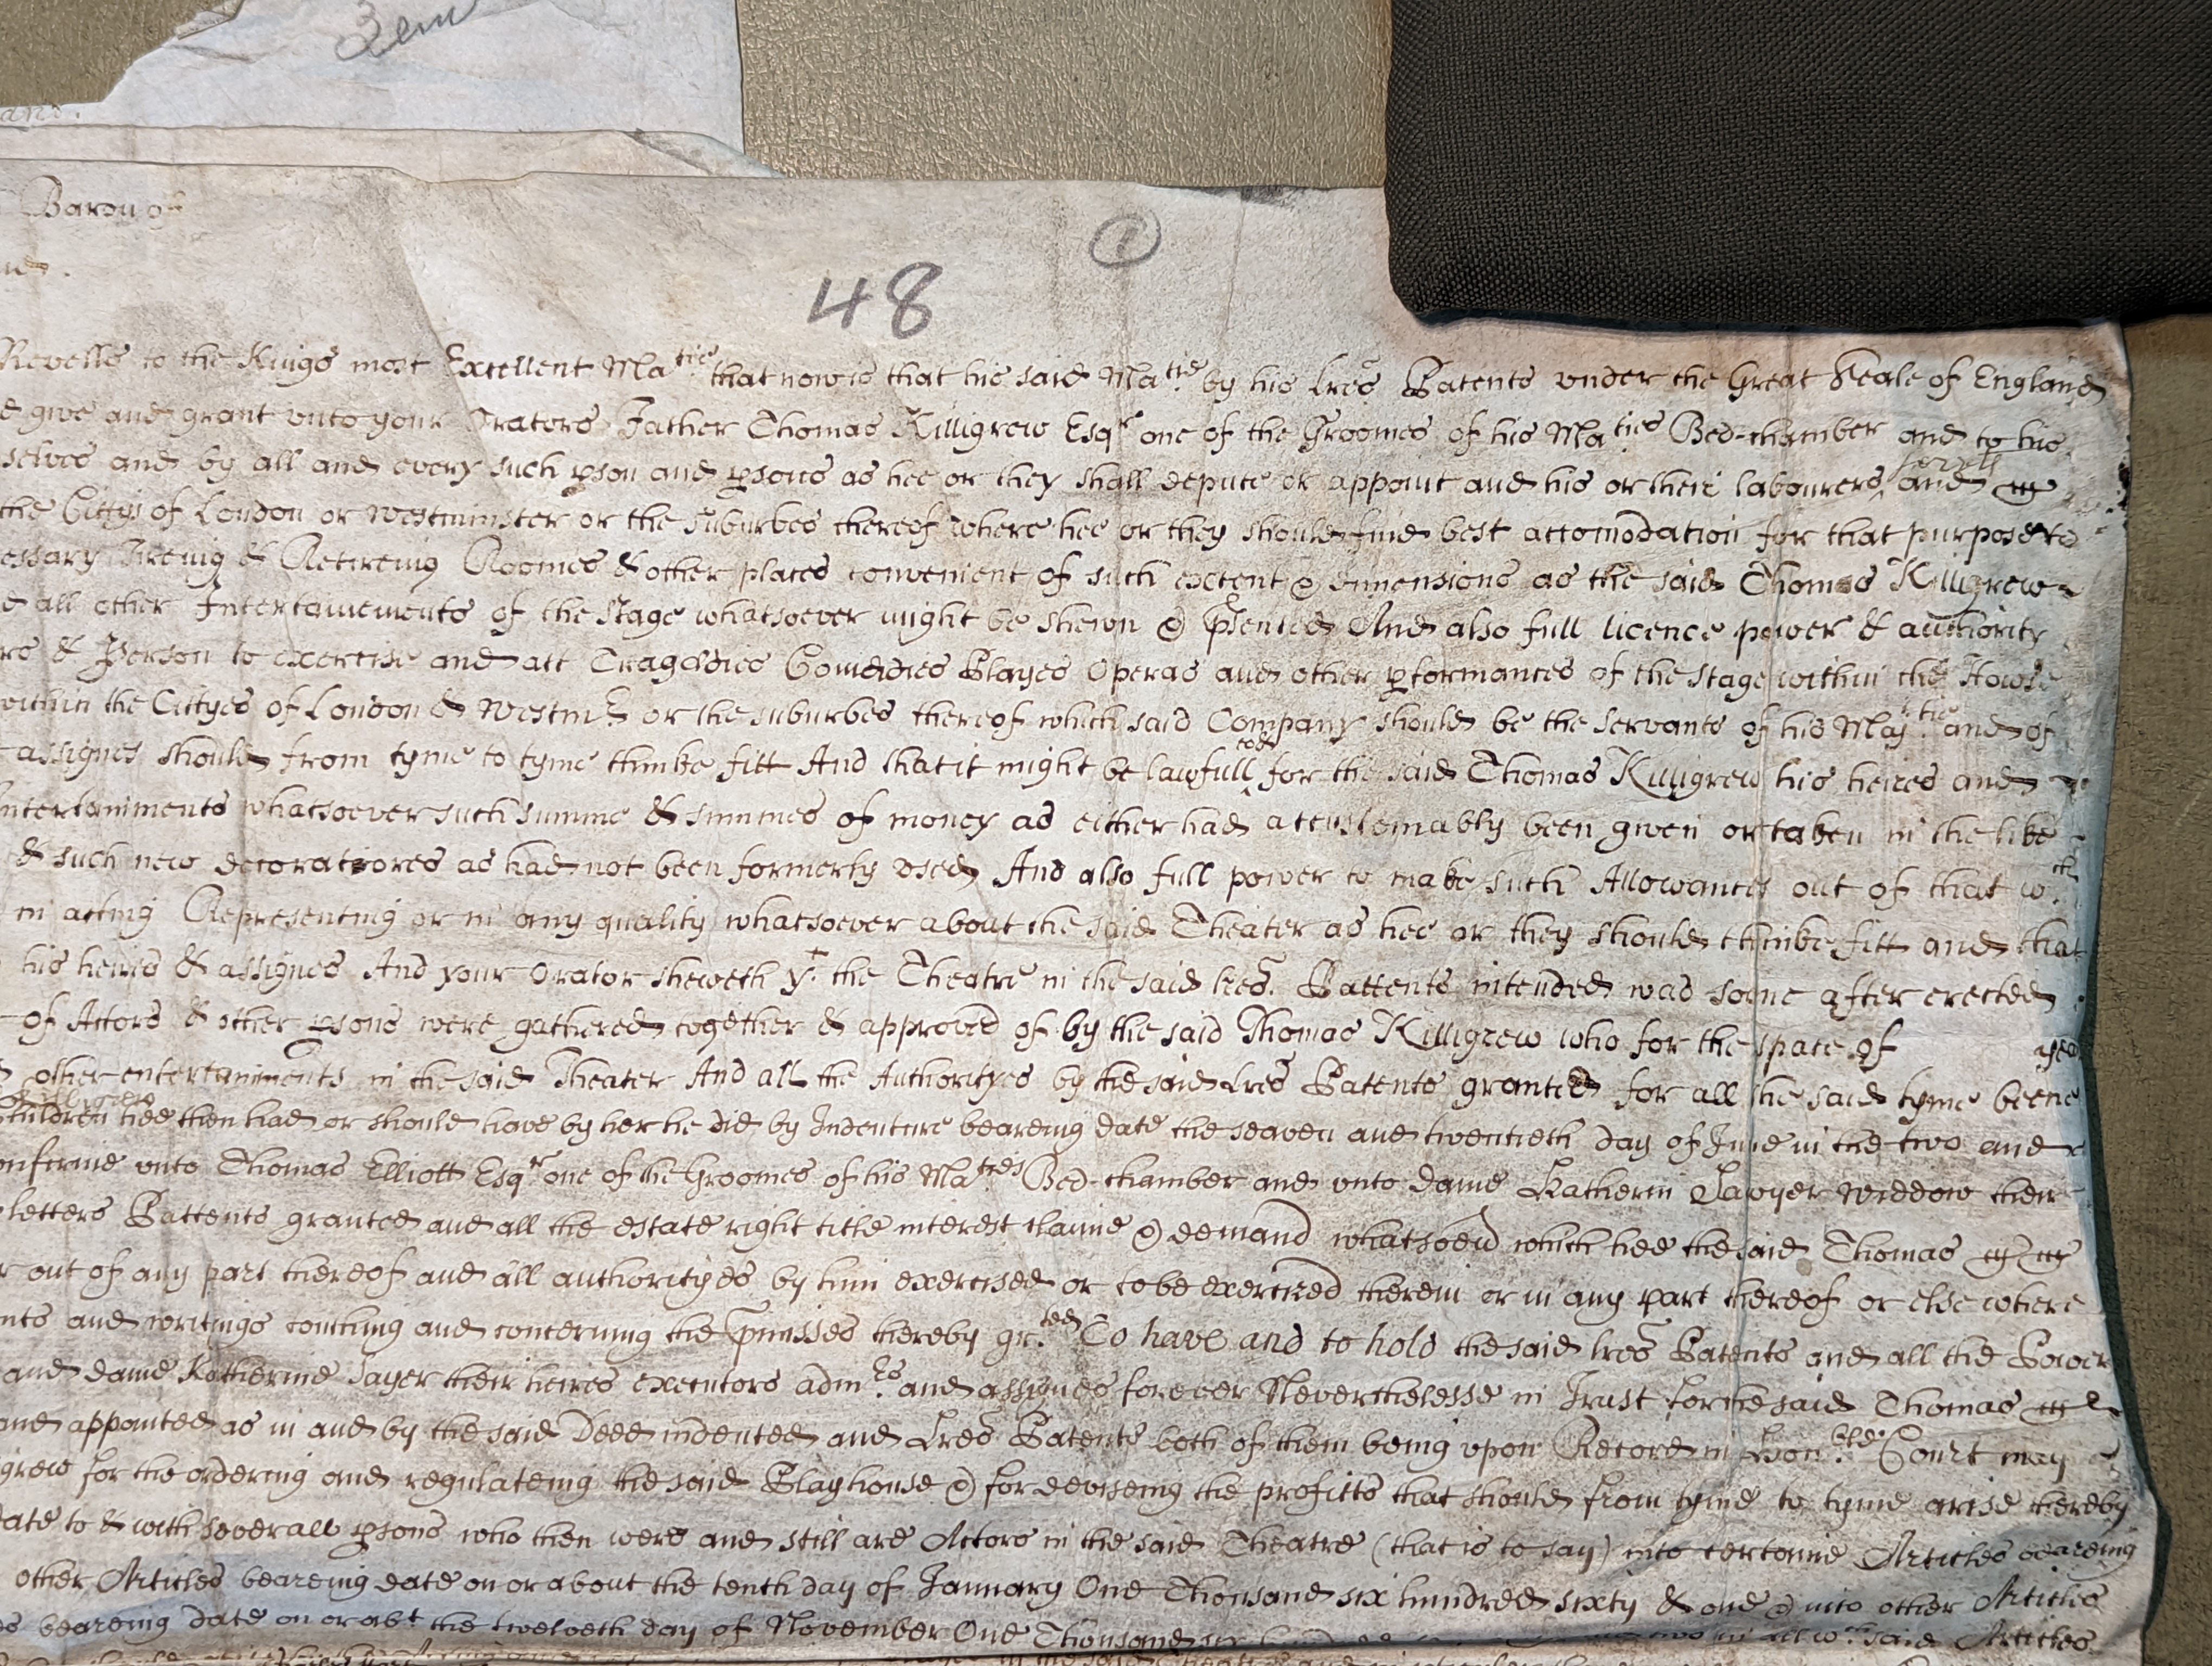 Baron of
1
48
Revells to the Kings most Excellent Ma:tie that now is that his said Ma:tie by his Lres Patents vnder the Great Seale of England
give and grant vnto your Orators Father Thomas Killigrew Esqr one of the Groomes of his Ma:ties Bed-chamber and to his
selves and by all and every such pson and psons as hee or they shall depute or appoint and his or their labourers and
the Cittys of London or Westminster or the suburbes thereof where hee or they should find best accomodation for that purpose to
essary Tireing & Retireing Roomes & other places convenient of such extent & dimensions as the said Thomas Killigrew
all other Intertainements of the Stage whatsoever might be shewn & psented And also full licence power & authority
rs & Person to exercise and act Tragedies Comedies Playes Operas and other pformances of the stage within the Howse
within the Cittyes of London & Westmr or the suburbes thereof which said Company should be the servants of his Maj:tie and of
assignes should from tyme to tyme thinke fitt And that it might be lawfull to & for the said Thomas Killigrew his heires and
Intertainments whatsoever such summe & summes of money as either had accustomably been given or taken in the like
& such new decorations as had not been formerly vsed And also full power to make such Allowances out of that w:ch
in acting Representing or in any quality whatsoever about the said Theater as hee or they should thinke fitt and that
his heirs & assignes And your Orator sheweth y:t the Theatre in the said lres Pattents intended was soone after erected
of Actors & other psons were gathered together & approved of by the said Thomas Killigrew who for the space of
other entertainments in the said Theater And all the Authorityes by the said Lres Patents granted for all the said tyme beene
Children hee then had or should have by her he did by Indenture beareing date the seaven and twentieth day of June in the two and
onfirme vnto Thomas Elliott Esqr one of the Groomes of his Ma:ties Bed-chamber and vnto dame Katherin Sawyer Widdow their
letters Pattents granted and all the estate right title interest claime & demand whatsoevr which hee the said Thomas
out of any part thereof and all authorityes by him exercised or to be exercized therein or in any part thereof or else where
nts and writings touching and concerning the pmisses thereby gr:ted To have and to hold the said lres Patents and all the Power
and dame Katherine Sayer their heires executors adm:rs and assignes forever Neverthelesse in Trust for the said Thomas
and appointed as in and by the said Deed indented and Lres Patents both of them being vpon Record in Hon:ble Court may
grew for the ordering and regulateing the said Playhouse & for deviseing the profitts that should from tyme to tyme arise thereby
date to & with severall psons who then were and still are Actors in the said Theatre (that is to say) into certaine Articles beareing
other Articles beareing date on or about the tenth day of January One Thousand six hundred sixty & one & into other Articles
beareing date on or abt the twelveth day of November One Thousand six said Articles